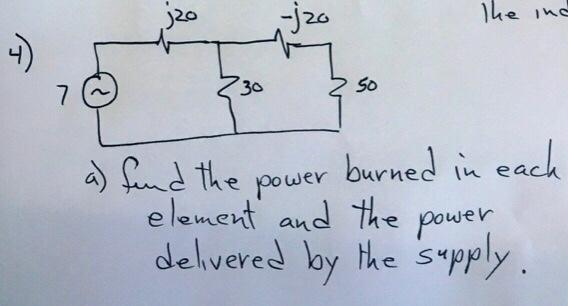 j20
-j20
The ind
4)
7
30
50
a) find the power burned in each
element and the power
delivered by the supply.